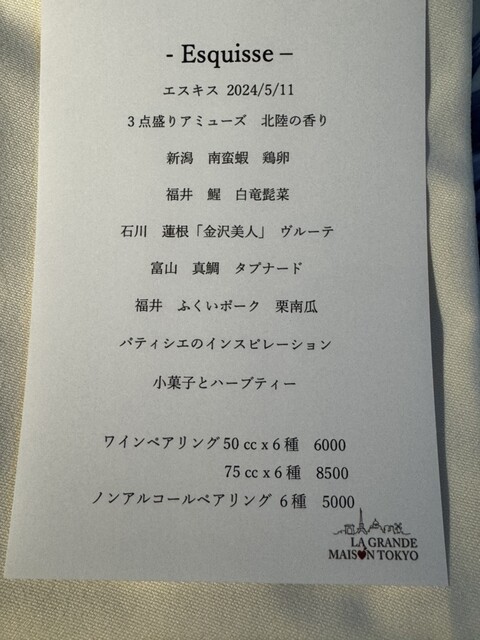 - Esquisse –
エスキス 2024/5/11
３点盛りアミューズ　北陸の香り
新潟　南蛮蝦　鶏卵
福井　鰉　白竜髭菜
石川　蓮根「金沢美人」 ヴルーテ
富山　真鯛　タプナード
福井　ふくいポーク　栗南瓜
パティシエのインスピレーション
小菓子とハーブティー
ワインペアリング 50 cc x 6 種　6000
75 cc x 6 種　8500
ノンアルコールペアリング 6 種　5000
LA GRANDE
MAISON TOKYO